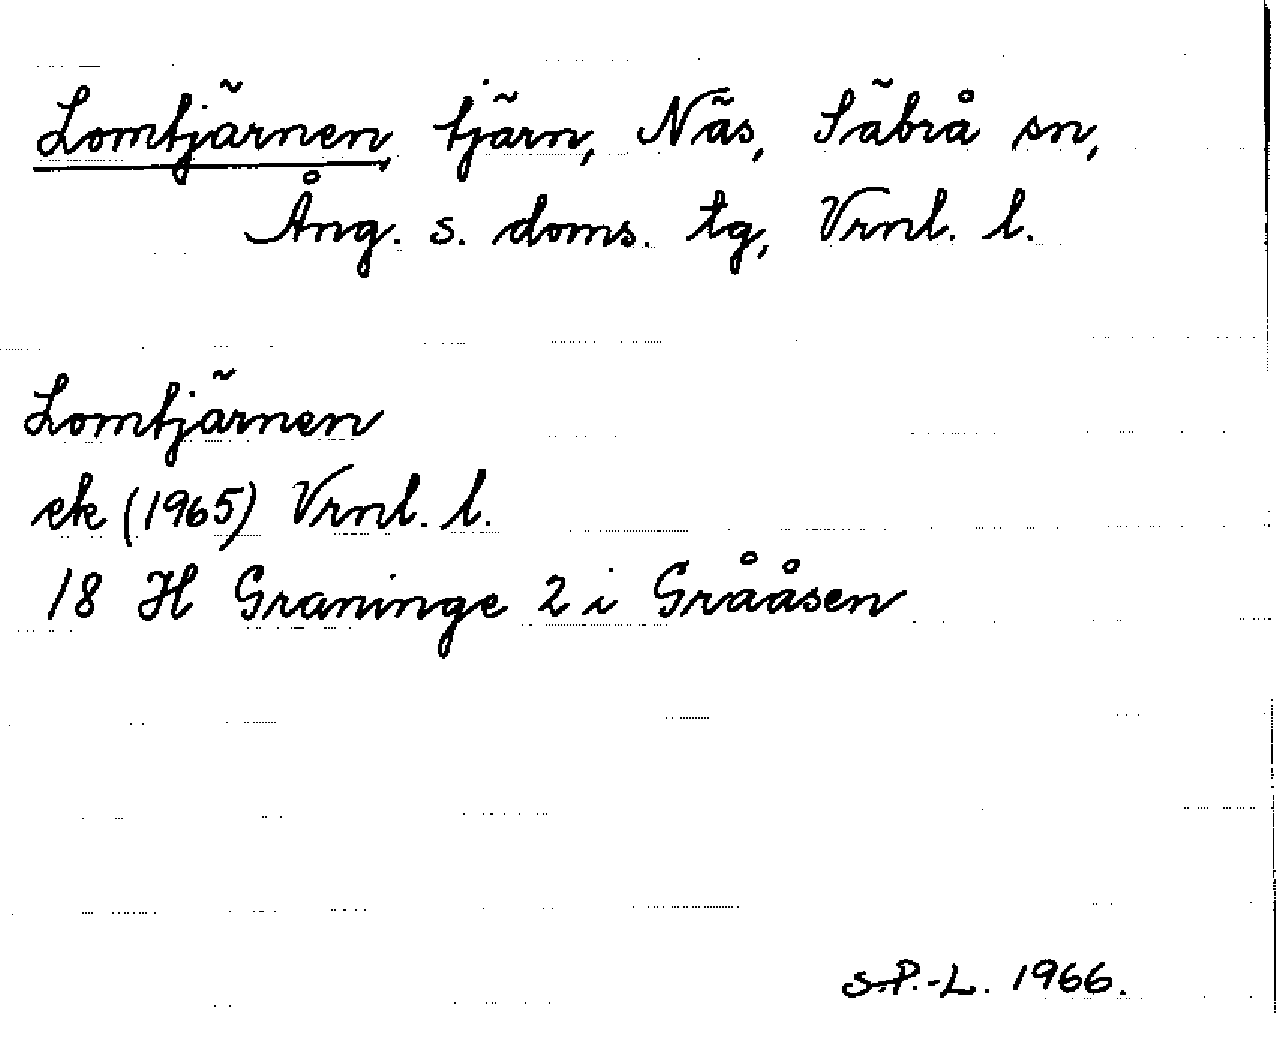 Lomtjärnen, tjärn, Näs, Säbrå sn,
Ång. s. doms. tg, Vrnl. l.
Lomtjärnen
ek (1965) Vrnl. l.
18 H Graninge 2 i Grååsen
S.P.-L. 1966.